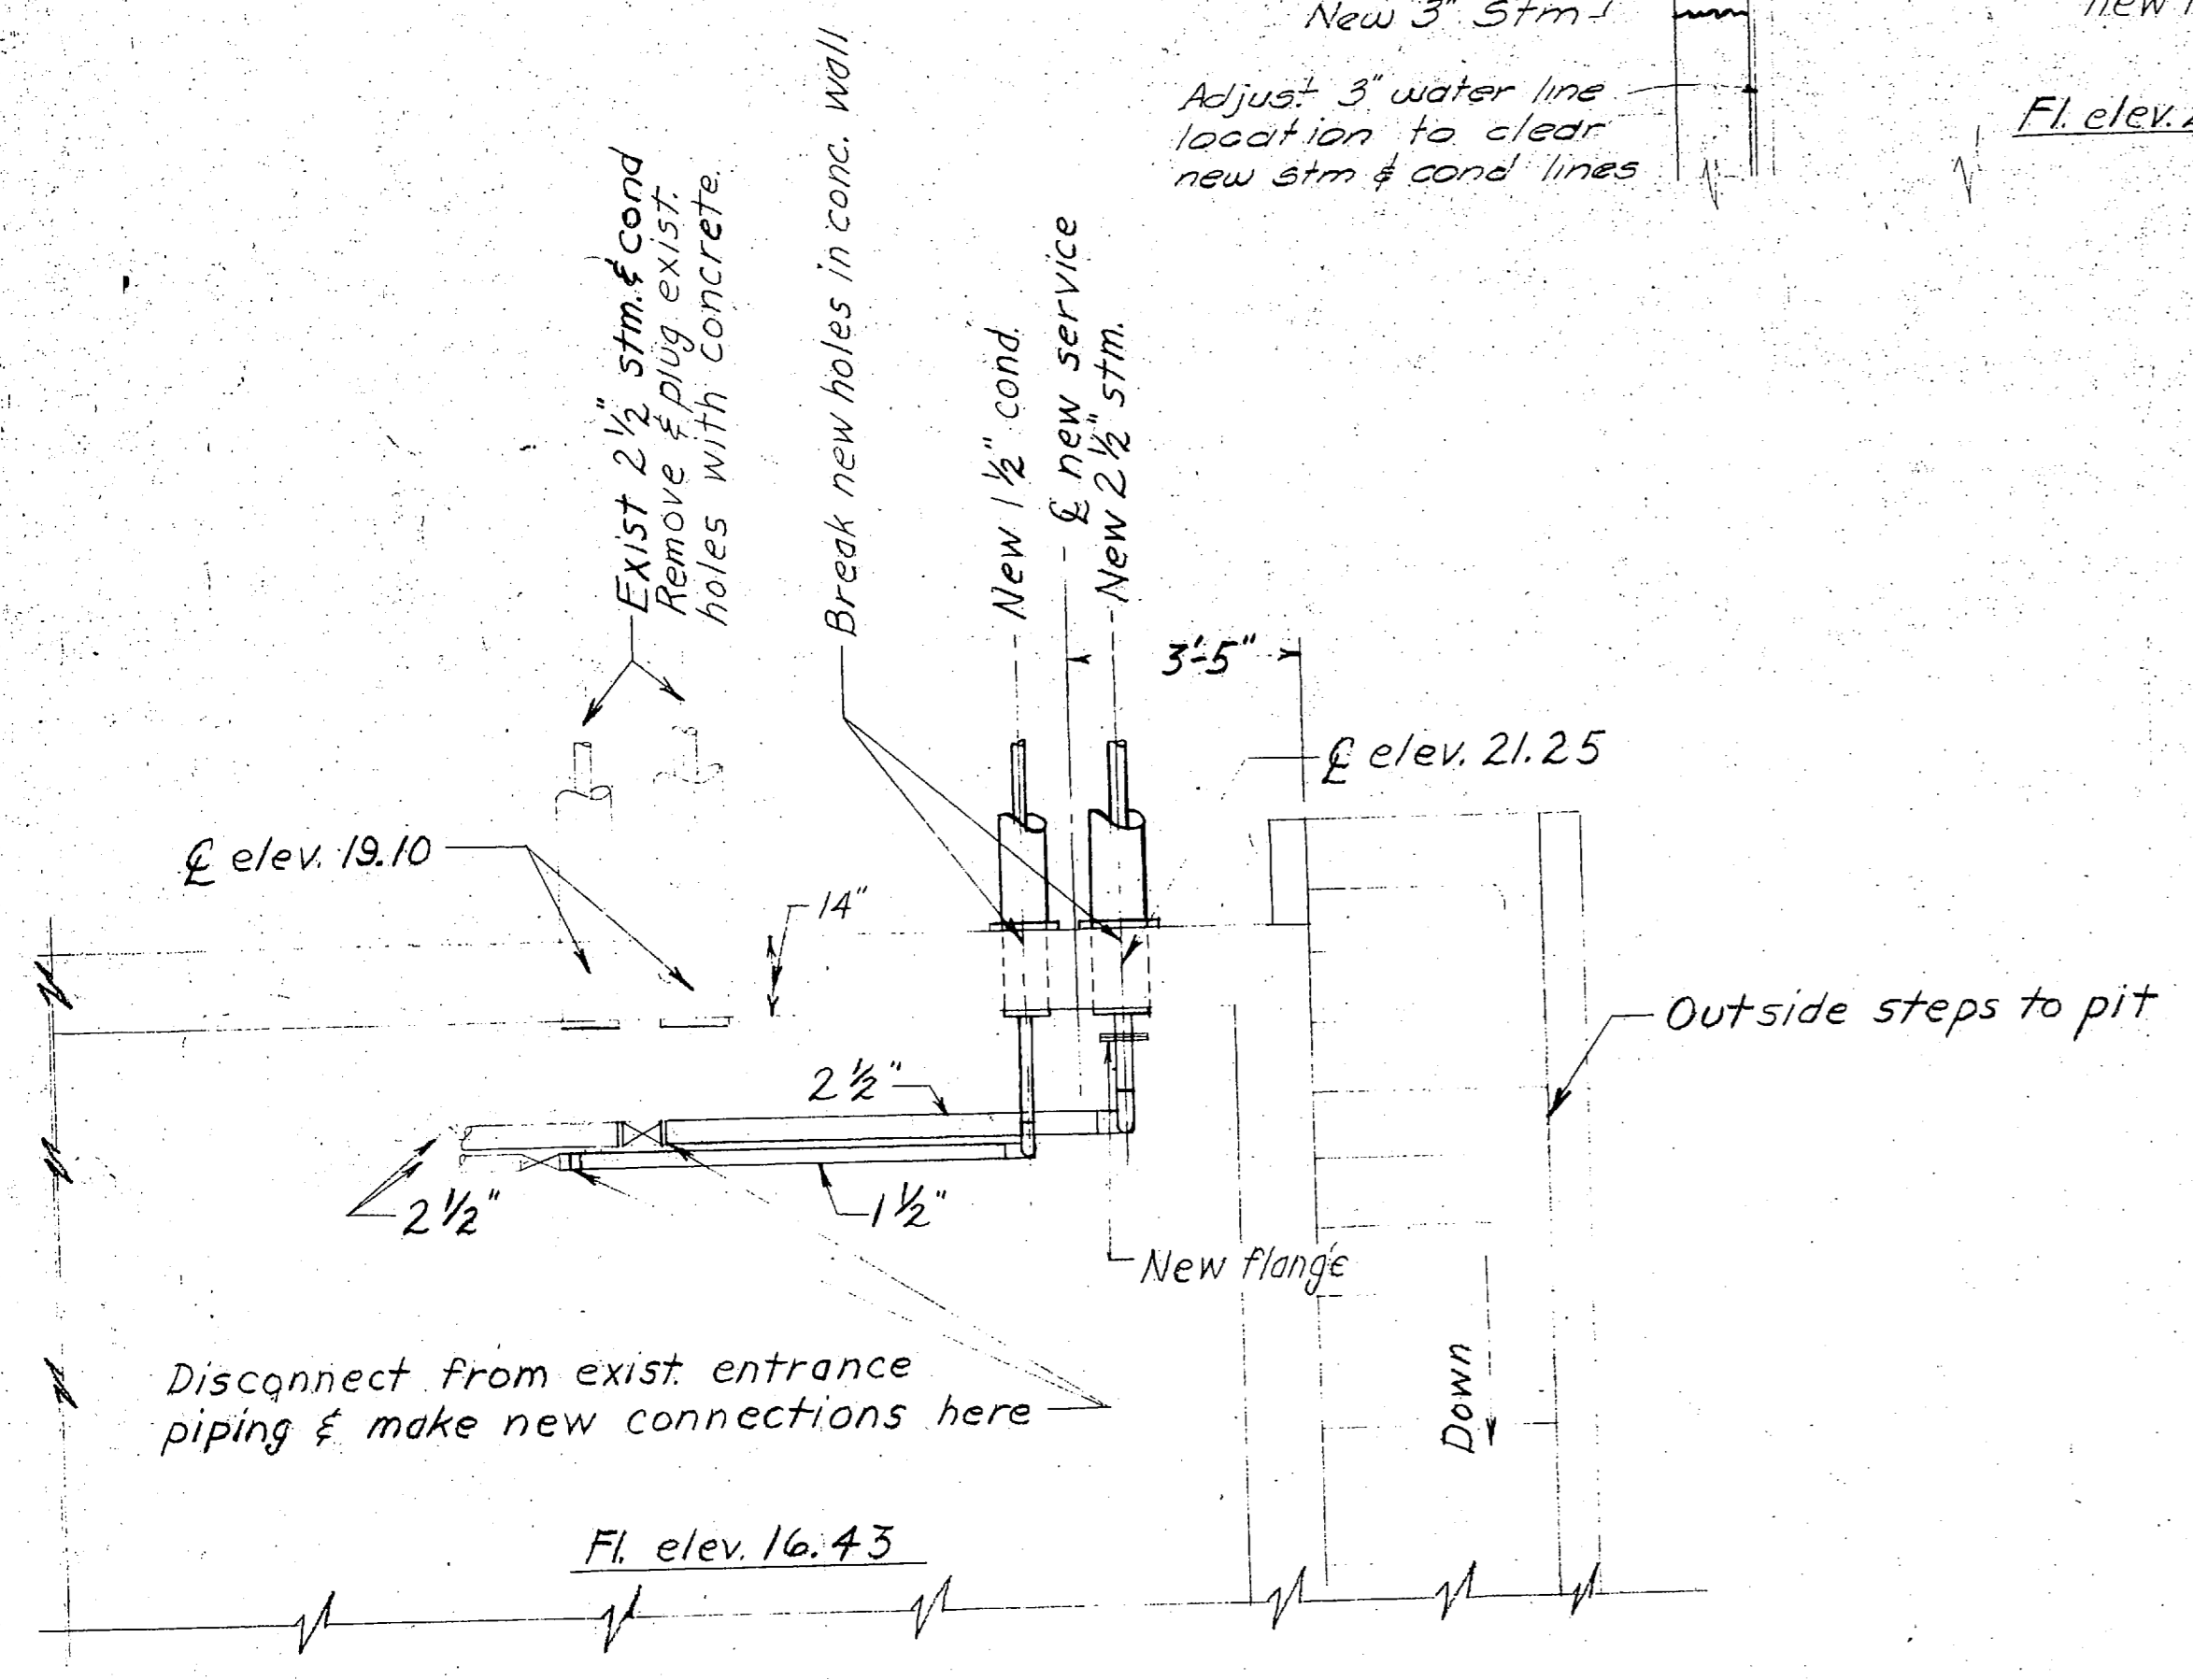 New 3" Stm
new
Adjust 3" water line
location to clear
new stm & cond lines
Fl. elev.
Exist 2½" stm. & cond
Remove & plug exist.
holes with concrete.
Break new holes in conc. wall
New 1½" cond.
℄ new service
New 2½" stm.
3'-5"
℄ elev. 21.25
℄ elev. 19.10
14"
Outside steps to pit
2½"
2½"
1½"
New flange
Disconnect from exist. entrance
piping & make new connections here
Down
Fl. elev. 16.43